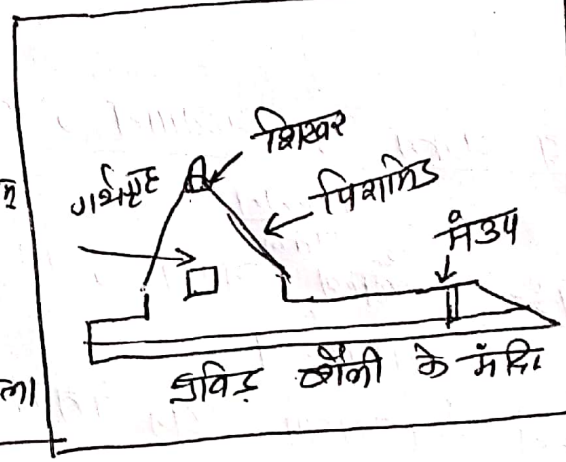 शिखर
गर्भगृह
पिरामिड
मंडप
द्रविड़ शैली के मंदिर